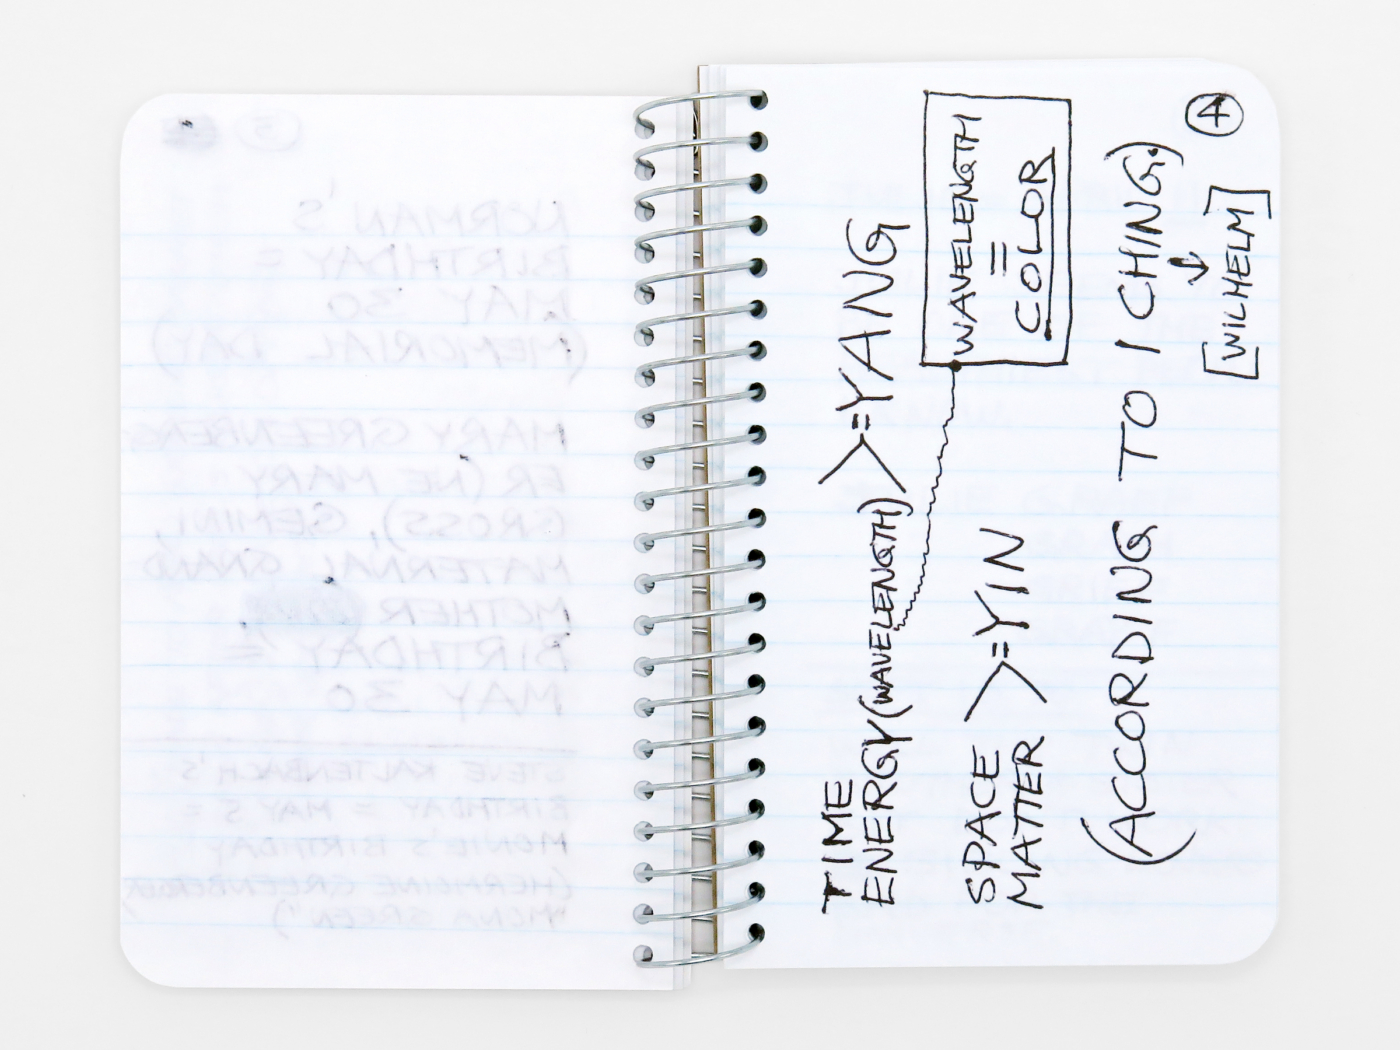 NORMAN'S
BIRTHDAY =
MAY 30
(MEMORIAL DAY)
MARY GREENBERG-
ER (NE MARY
GROSS), GEMINI,
MATERNAL GRAND
MOTHER
BIRTHDAY =
MAY 30
STEVE KALTENBACH'S
BIRTHDAY = MAY 5 =
MONIE'S BIRTHDAY
(HERMOINE GREENBERGER/
"MONA GREEN")
4
TIME
ENERGY (WAVELENGTH) >=YANG
WAVELENGTH
=
COLOR
SPACE
MATTER >=YIN
(ACCORDING TO I CHING.)
↓
[WILHELM]